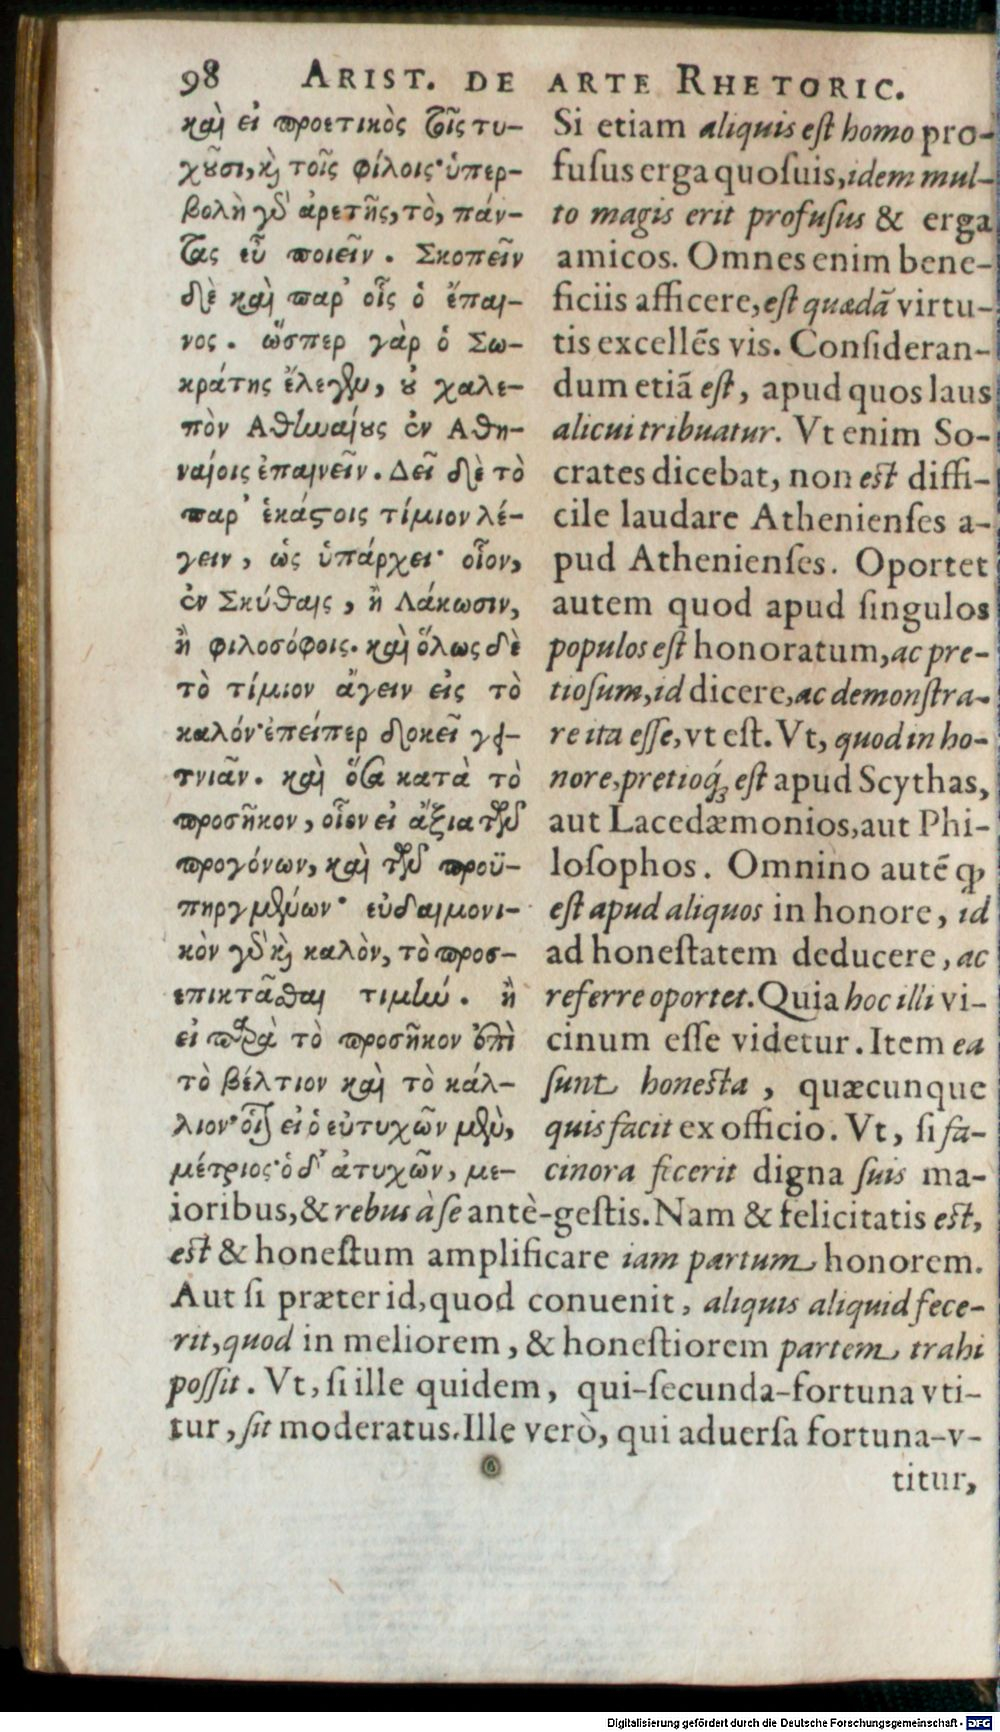 98 ARIST. DE ARTE RHETORIC.
καὶ εἰ προετικὸς τοῖς τυ-
χοῦσι, καὶ τοῖς φίλοις· ὑπερ-
βολὴ γὰρ ἀρετῆς, τὸ, πάν-
τας εὖ ποιεῖν. Σκοπεῖν
δὲ καὶ παρ' οἷς ὁ ἔπαι-
νος. ὥσπερ γὰρ ὁ Σω-
κράτης ἔλεγεν, οὐ χαλε-
πὸν Ἀθηναίους ἐν Ἀθη-
ναίοις ἐπαινεῖν. Δεῖ δὲ τὸ
παρ' ἑκάστοις τίμιον λέ-
γειν, ὡς ὑπάρχει· οἷον,
ἐν Σκύθαις, ἢ Λάκωσιν,
ἢ φιλοσόφοις. καὶ ὅλως δὲ
τὸ τίμιον ἄγειν εἰς τὸ
καλόν· ἐπείπερ δοκεῖ γει-
τνιᾶν. καὶ ὅσα κατὰ τὸ
προσῆκον, οἷον εἰ ἄξια τῶν
προγόνων, καὶ τῶν προϋ-
πηργμένων· εὐδαιμονι-
κὸν γὰρ καὶ καλὸν, τὸ προσ-
επικτᾶσθαι τιμήν. ἢ
εἰ παρὰ τὸ προσῆκον ἐπὶ
τὸ βέλτιον καὶ τὸ κάλ-
λιον· οἷον εἰ ὁ εὐτυχῶν μὲν,
μέτριος· ὁ δ' ἀτυχῶν, με-
Si etiam aliquis eſt homo pro-
fuſus erga quoſuis, idem mul-
to magis erit profuſus & erga
amicos. Omnes enim bene-
ficiis afficere, eſt quædã virtu-
tis excellẽs vis. Conſideran-
dum etiã eſt, apud quos laus
alicui tribuatur. Vt enim So-
crates dicebat, non eſt diffi-
cile laudare Athenienſes a-
pud Athenienſes. Oportet
autem quod apud ſingulos
populos eſt honoratum, ac pre-
tioſum, id dicere, ac demonſtra-
re ita eſſe, vt eſt. Vt, quod in ho-
nore, pretioq́; eſt apud Scythas,
aut Lacedæmonios, aut Phi-
loſophos. Omnino autẽ ꝙ
eſt apud aliquos in honore, id
ad honeſtatem deducere, ac
referre oportet. Quia hoc illi vi-
cinum eſſe videtur. Item ea
ſunt honeſta, quæcunque
quis facit ex officio. Vt, ſi fa-
cinora fecerit digna ſuis ma-
ioribus, & rebus à ſe antè-geſtis. Nam & felicitatis eſt,
eſt & honeſtum amplificare iam partum honorem.
Aut ſi præter id, quod conuenit, aliquis aliquid fece-
rit, quod in meliorem, & honeſtiorem partem trahi
poſſit. Vt, ſi ille quidem, qui-ſecunda-fortuna vti-
tur, ſit moderatus. Ille verò, qui aduerſa fortuna-v-
titur,
Digitalisierung gefördert durch die Deutsche Forschungsgemeinschaft - DFG